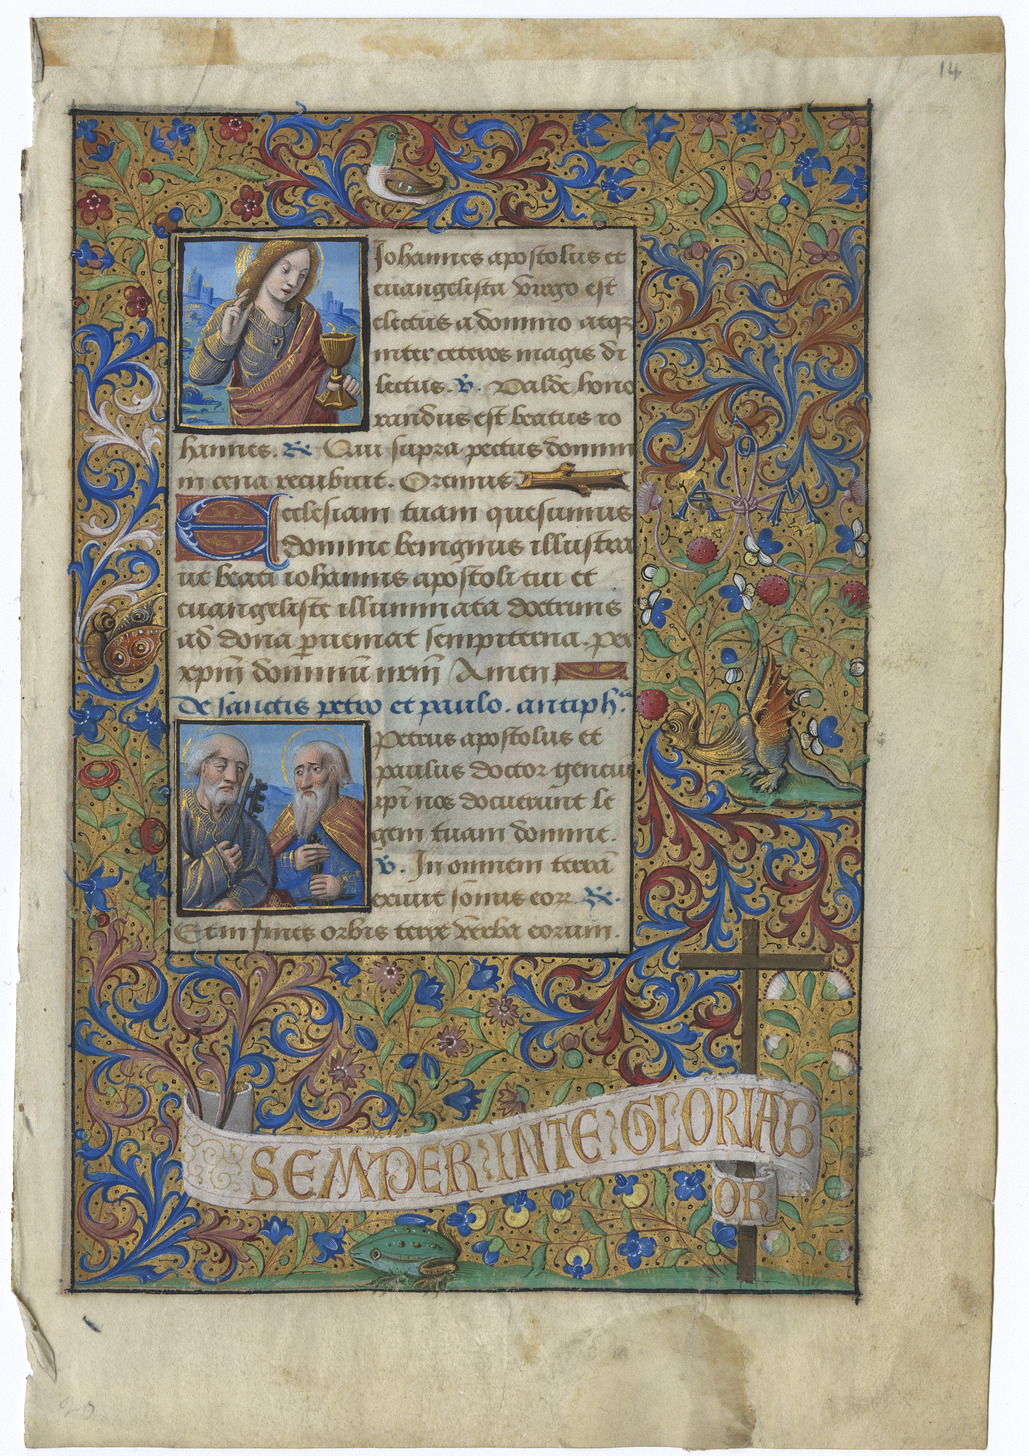 14
Johannes apostolus et
euangelista virgo est
electus a domino atqz
inter ceteros magis di
lectus. ꝟ. Valde hono
randus est beatus io
hannes. ℟. Qui supra pectus domini
in cena recubuit. Oremus.
Ecclesiam tuam quesumus
domine benignus illustra
ut beati iohannis apostoli tui et
euangeliste illuminata doctrinis
ad dona ꝑueniat sempiterna. per
xpm̄ dominū nrm̄ Amen
De sanctis petro et paulo. antiph.ᵃ
Petrus apostolus et
paulus doctor genciū
ipi nos docuerunt le
gem tuam domine.
ꝟ. In omnem terrā
exiuit sonus eor. ℟.
Et in fines orbis terre verba eorum.
A M
SEMPER IN TE GLORIAB
OR